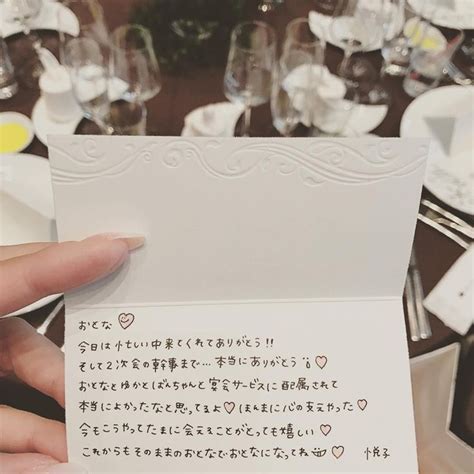 おとな♡
今日は忙しい中来てくれてありがとう!!
そして2次会の幹事まで…本当にありがとう♡
おとなとゆかとばんちゃんと宴会サービスに配属されて
本当によかったなと思ってるよ♡ほんまに心の支えやった♡
今もこうやってたまに会えることがとっても嬉しい♡
これからもそのままのおとなでおとなになってね♡ 悦子